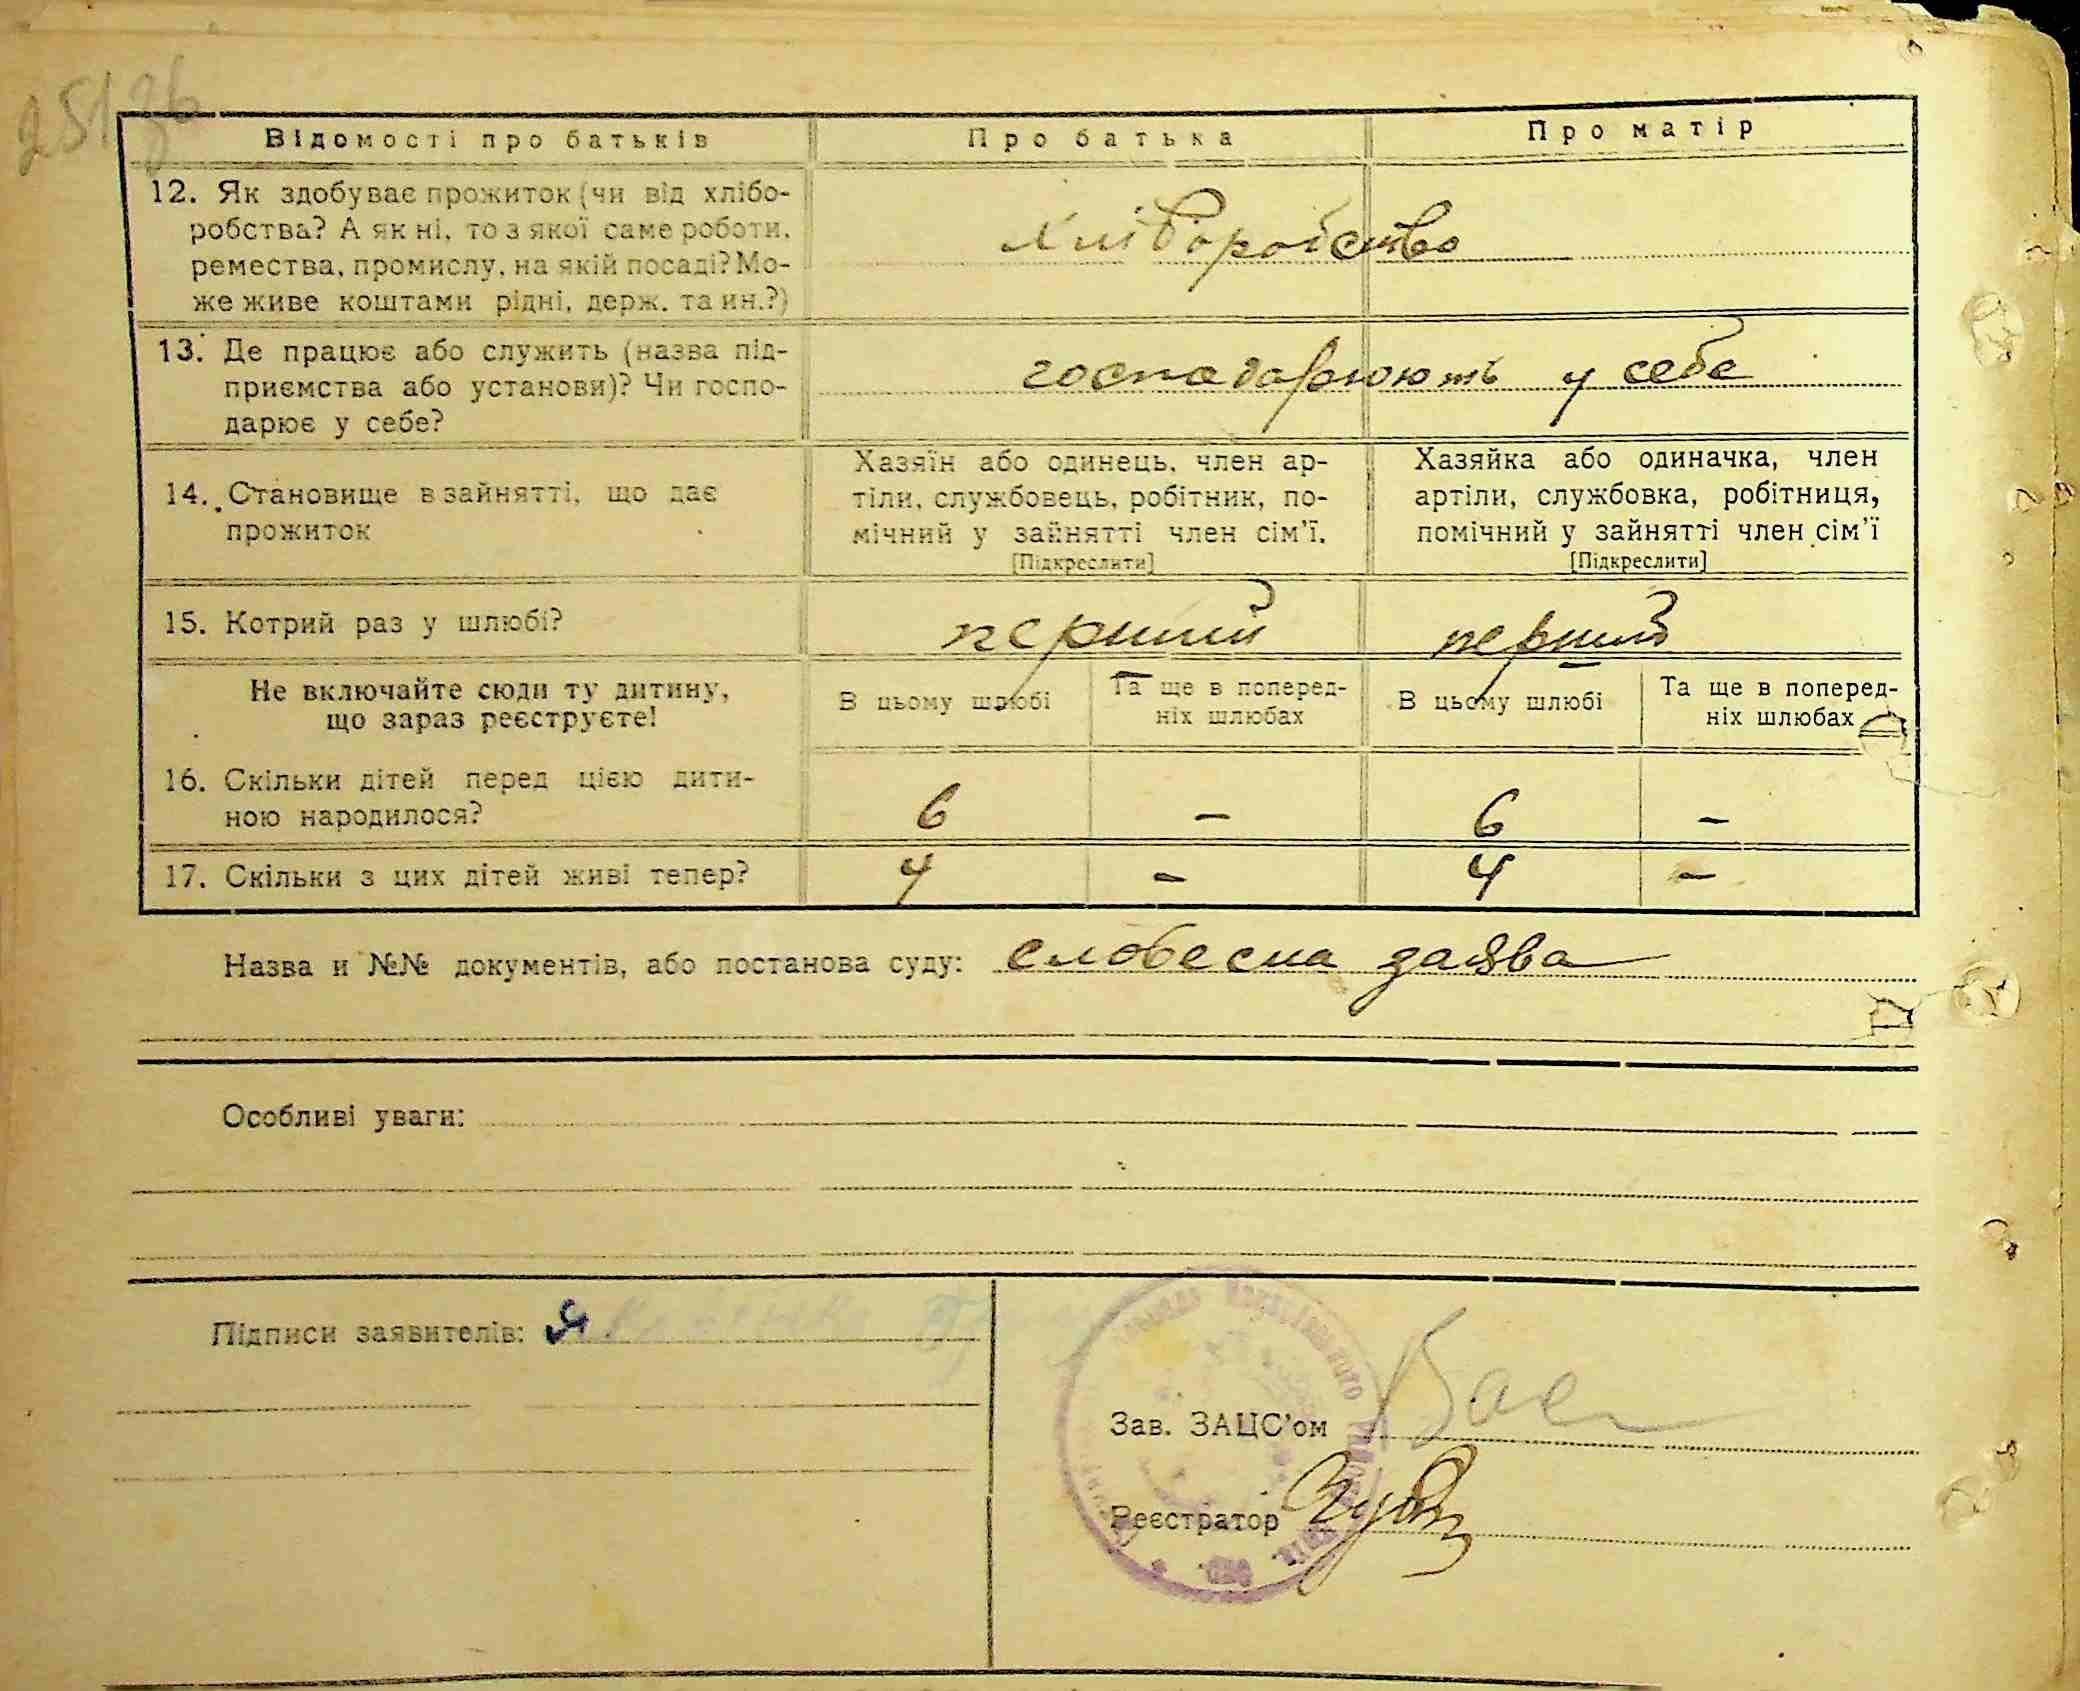 251зв
Відомості про батьків
Про батька
Про матір
12. Як здобуває прожиток (чи від хлібо-
робства? А як ні, то з якої саме роботи,
ремества, промислу, на якій посаді? Мо-
же живе коштами рідні, держ. та ин.?)
Хліборобство
13. Де працює або служить (назва під-
приємства або установи)? Чи госпо-
дарює у себе?
господарюють у себе
14. Становище в зайнятті, що дає
прожиток
Хазяїн або одинець, член ар-
тіли, службовець, робітник, по-
мічний у зайнятті член сім'ї.
[Підкреслити]
Хазяйка або одиначка, член
артіли, службовка, робітниця,
помічний у зайнятті член сім'ї
[Підкреслити]
15. Котрий раз у шлюбі?
перший
перший
Не включайте сюди ту дитину,
що зараз реєструєте!
В цьому шлюбі
Та ще в поперед-
ніх шлюбах
В цьому шлюбі
Та ще в поперед-
ніх шлюбах
16. Скільки дітей перед цією дити-
ною народилося?
6 – 6 –
17. Скільки з цих дітей живі тепер?
4 – 4 –
Назва и №№ документів, або постанова суду: словесна заява
Особливі уваги:
Підписи заявителів: Я
Зав. ЗАЦС'ом
Реєстратор